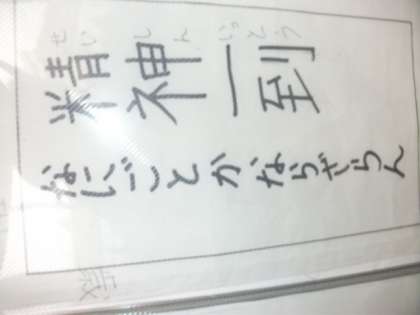 せいしんいっとう
精神一到
なにごとかならざらん